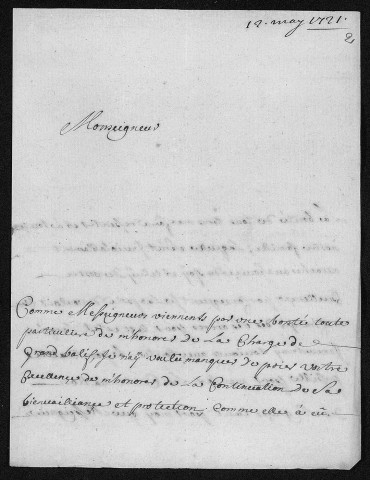 12. may 1721.
2
Monseigneur
Comme Messeigneurs viennents par une bonté toute
particuliere de m'honorer de La Charge de
grand balif, je n'ay voulu manquer de prier vostre
Excellence de m'honorer de La Continuation de Sa
bienveillance et protection. Comme elle a eü